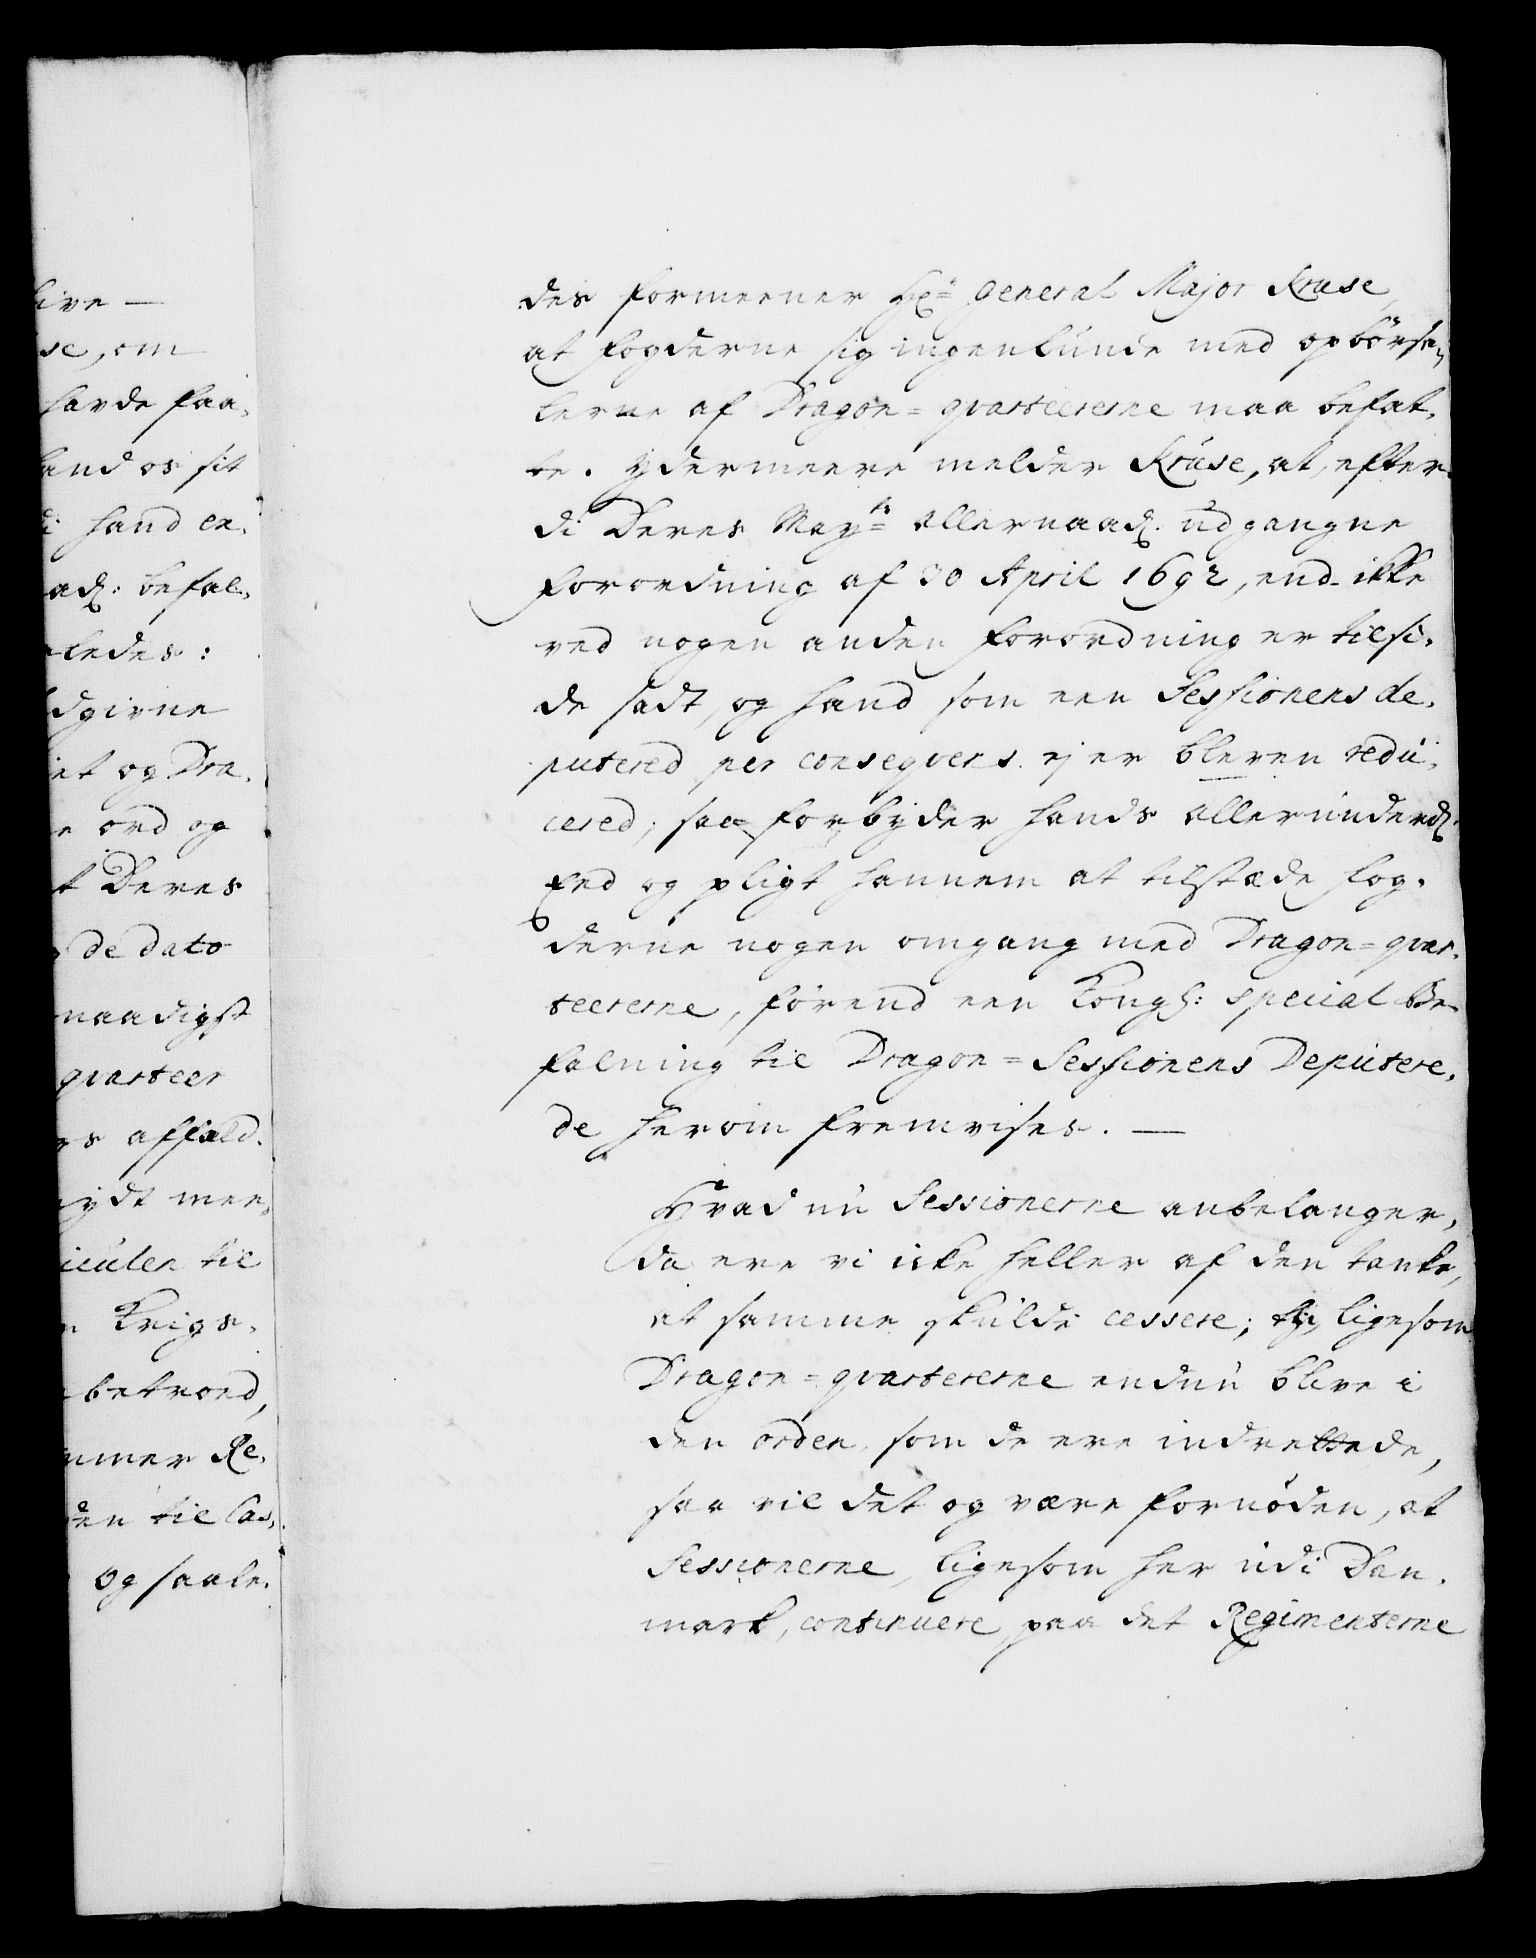 live —
se, om
havde faa,
land os sit
di hand er,
ad: befal,
ledes:
dgivne
et og Dra,
e ord og
t Deres
de dato
naadigst
quarteer
rs affald.
ydt mee,
iculen til
n Krigs,
betroed,
mmer Re,
den til Cas,
og saale,
des formeener Hr: General Major Kruse,
at fogderne sig ingenlunde med opbørse,
lerne af Dragon=qvarteererne maa befat,
te. Ydermeere melder Kruse, at, efter,
di Deres Mayts: Allernaad. udgangne
forordning af 30 April 1692, end ikke
ved nogen anden forordning er tilsi,
de sadt, og hand som een Sessionens de,
putered per conseqvens ej er bleven redu,
cered; saa forbyder hands allerunderd.
Eed og pligt hannem at tilstæde fog,
derne nogen omgang med Dragon=qvar,
teererne, førend een Kongl: special Be,
falning til Dragon=Sessionens Deputere,
de herom fremvises. —
Hvad nu Sessionerne anbelanger,
da ere vi icke heller af den tanke,
at samme skulde cessere; thi, ligesom
Dragon=qvartererne endnu blive i
den orden, som de ere indrettede,
saa vil det og være fornøden, at
Sessionerne, ligesom her udi Dan,
mark, continuere, paa det Regimenterne